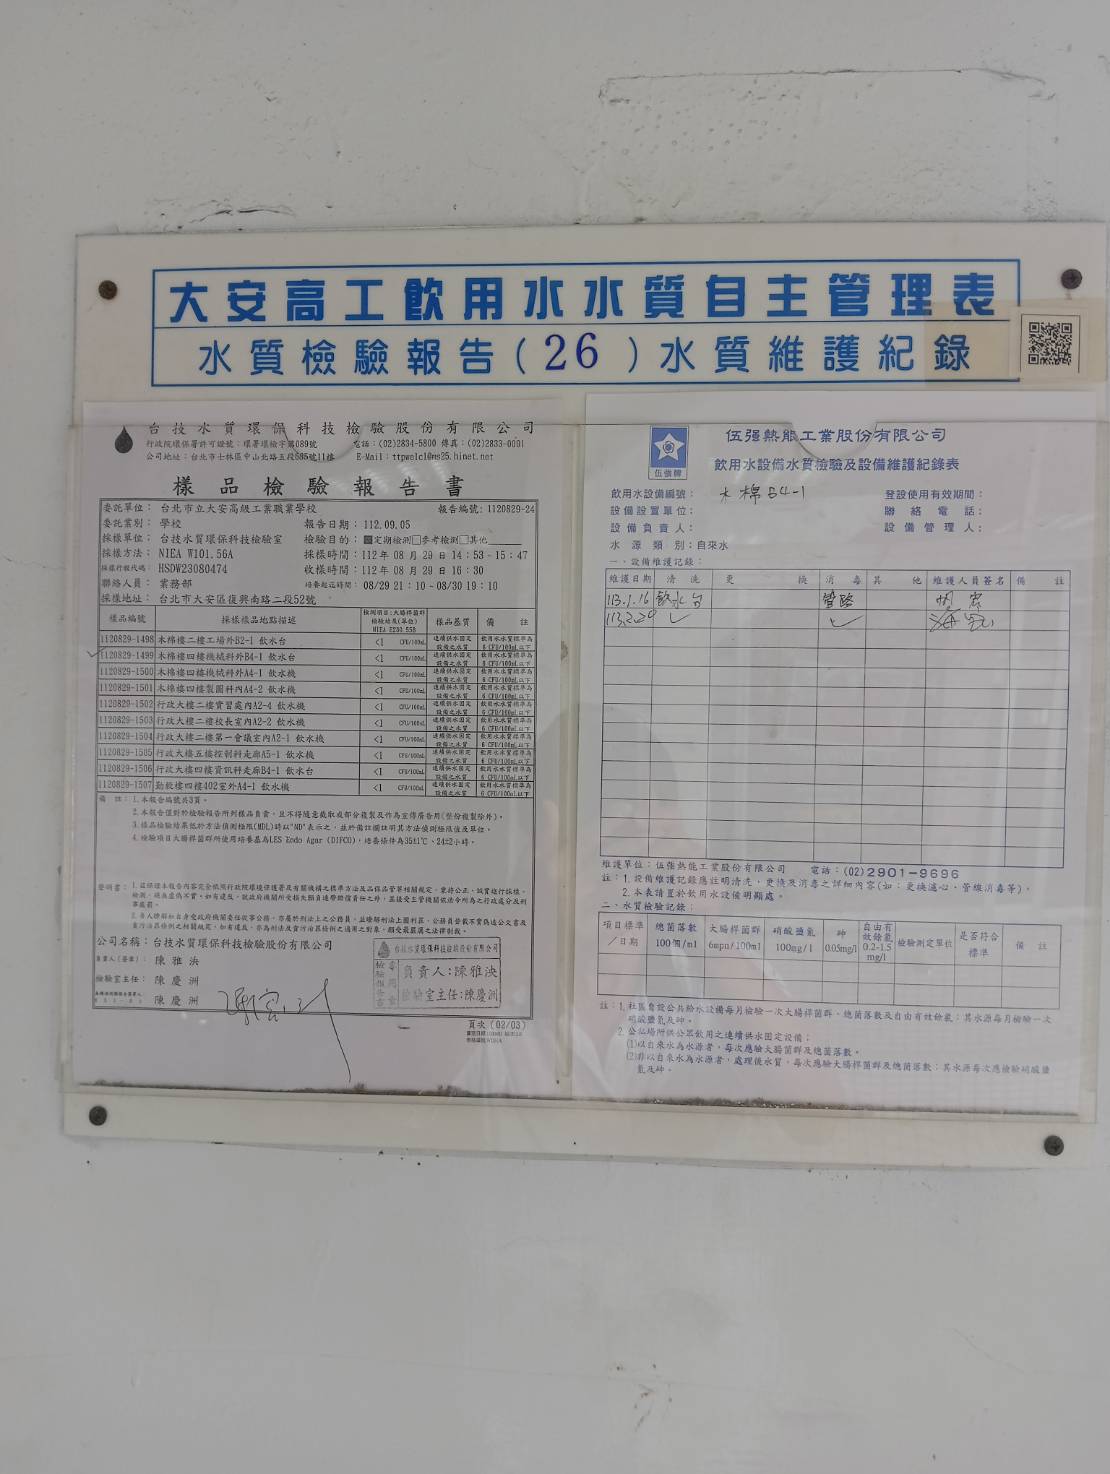 大安高工飲用水水質自主管理表
水質檢驗報告(26)水質維護紀錄
台技水質環保科技檢驗股份有限公司
行政院環保署許可證號：環署環檢字第089號 電話：(02)2834-5800 傳真：(02)2833-0001
公司地址：台北市士林區中山北路五段685號11樓 E-Mail：ttpwelcl@ms25.hinet.net
樣品檢驗報告書
委託單位：台北市立大安高級工業職業學校 報告編號：1120829-24
委託業別：學校 報告日期：112.09.05
採樣單位：台技水質環保科技檢驗室 檢驗目的：■定期檢測□參考檢測□其他
採樣方法：NIEA W101.56A 採樣時間：112年08月29日14：53~15：47
採樣行程代碼：HSDW23080474 收樣時間：112年08月29日16：30
聯絡人員：業務部 培養起迄時間：08/29 21：10~08/30 19：10
採樣地址：台北市大安區復興南路二段52號
樣品編號 採樣樣品地點描述 檢測項目：大腸桿菌群 檢驗結果(單位) NIEA E230.55B 樣品基質 備 註
1120829-1498 木棉樓二樓工場外B2-1 飲水台 <1 CFU/100mL 連續供水固定設備之水質 飲用水水質標準為6 CFU/100mL以下
1120829-1499 木棉樓四樓機械科外B4-1 飲水台 <1 CFU/100mL 連續供水固定設備之水質 飲用水水質標準為6 CFU/100mL以下
1120829-1500 木棉樓四樓機械科外A4-1 飲水機 <1 CFU/100mL 連續供水固定設備之水質 飲用水水質標準為6 CFU/100mL以下
1120829-1501 木棉樓四樓製圖科內A4-2 飲水機 <1 CFU/100mL 連續供水固定設備之水質 飲用水水質標準為6 CFU/100mL以下
1120829-1502 行政大樓二樓實習處內A2-4 飲水機 <1 CFU/100mL 連續供水固定設備之水質 飲用水水質標準為6 CFU/100mL以下
1120829-1503 行政大樓二樓校長室內A2-2 飲水機 <1 CFU/100mL 連續供水固定設備之水質 飲用水水質標準為6 CFU/100mL以下
1120829-1504 行政大樓二樓第一會議室內A2-1 飲水機 <1 CFU/100mL 連續供水固定設備之水質 飲用水水質標準為6 CFU/100mL以下
1120829-1505 行政大樓五樓控制科走廊A5-1 飲水機 <1 CFU/100mL 連續供水固定設備之水質 飲用水水質標準為6 CFU/100mL以下
1120829-1506 行政大樓四樓資訊科走廊B4-1 飲水台 <1 CFU/100mL 連續供水固定設備之水質 飲用水水質標準為6 CFU/100mL以下
1120829-1507 勤毅樓四樓402室外A4-1 飲水機 <1 CFU/100mL 連續供水固定設備之水質 飲用水水質標準為6 CFU/100mL以下
備 註：1.本報告編號共3頁。
2.本報告僅對於檢驗報告所列樣品負責，且不得隨意截取或部分複製及作為宣傳廣告用(整份複製除外)。
3.樣品檢驗結果低於方法偵測極限(MDL)時以"ND"表示之，並於備註欄註明其方法偵測極限值及單位。
4.檢驗項目大腸桿菌群所使用培養基為LES Endo Agar (DIFCO)，培養條件為35±1℃、24±2小時。
聲明書：
公司名稱：台技水質環保科技檢驗股份有限公司
負責人(簽章)：陳雅泱
檢驗室主任：陳慶洲
陳慶洲
台技水質環保科技檢驗股份有限公司
檢驗報告專用章
負責人：陳雅泱
檢驗室主任：陳慶洲
頁次(02/03)
伍強牌
伍强熱能工業股份有限公司
飲用水設備水質檢驗及設備維護紀錄表
飲用水設備編號：木棉B4-1 登設使用有效期間：
設備設置單位： 聯絡電話：
設備負責人： 設備管理人：
水源類別：自來水
一、設備維護記錄：
維護日期 清洗 更換 消毒 其他 維護人員簽名 備註
113.1.16 飲水台 管路
113.2.29 ✓ ✓
維護單位：伍强熱能工業股份有限公司 電話：(02)2901-9696
註：1.設備維護記錄應註明清洗、更換及消毒之詳細內容(如：更換濾心、管線消毒等)。
2.本表請置於飲用水設備明顯處。
二、水質檢驗記錄：
項目標準／日期 總菌落數 100個/ml 大腸桿菌群 6mpn/100ml 硝酸鹽氮 100mg/l 砷 0.05mg/l 自由有效餘氯 0.2-1.5 mg/l 檢驗測定單位 是否符合標準 備註
註：1.社區自設公共給水設備每月檢驗一次大腸桿菌群、總菌落數及自由有效餘氯；其水源每月檢驗一次
硝酸鹽氮及砷。
2.公私場所供公眾飲用之連續供水固定設備：
(1)以自來水為水源者，每次應驗大腸菌群及總菌落數。
(2)非以自來水為水源者，處理後水質，每次應驗大腸桿菌群及總菌落數；其水源每次應檢驗硝酸鹽
氮及砷。